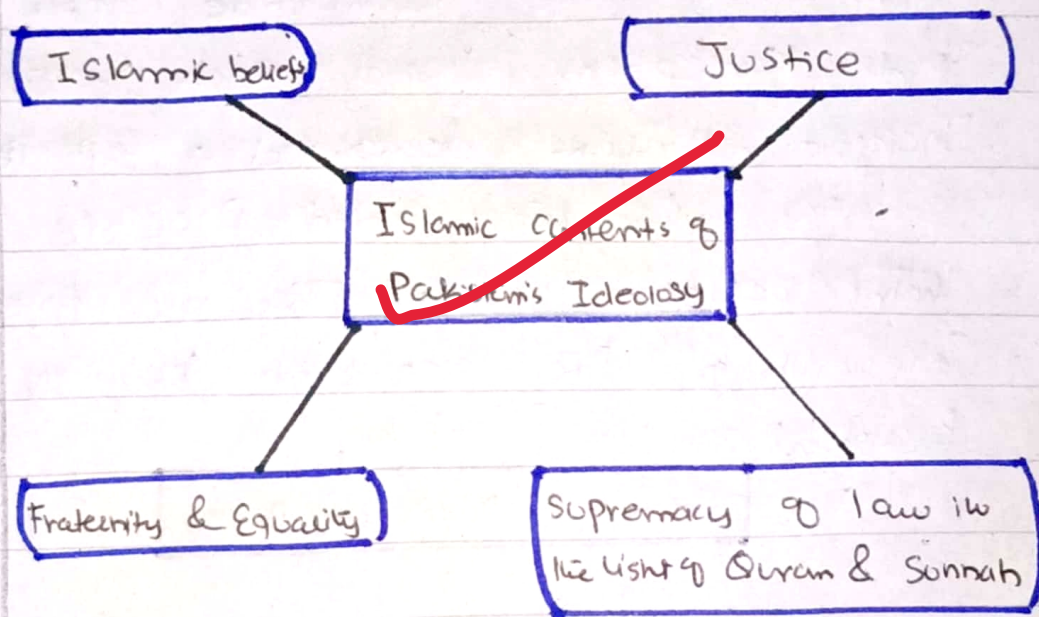 Islamic beliefs
Justice
Islamic Contents of
Pakistan's Ideology
Fraternity & Equality
Supremacy of law in
the light of Quran & Sunnah